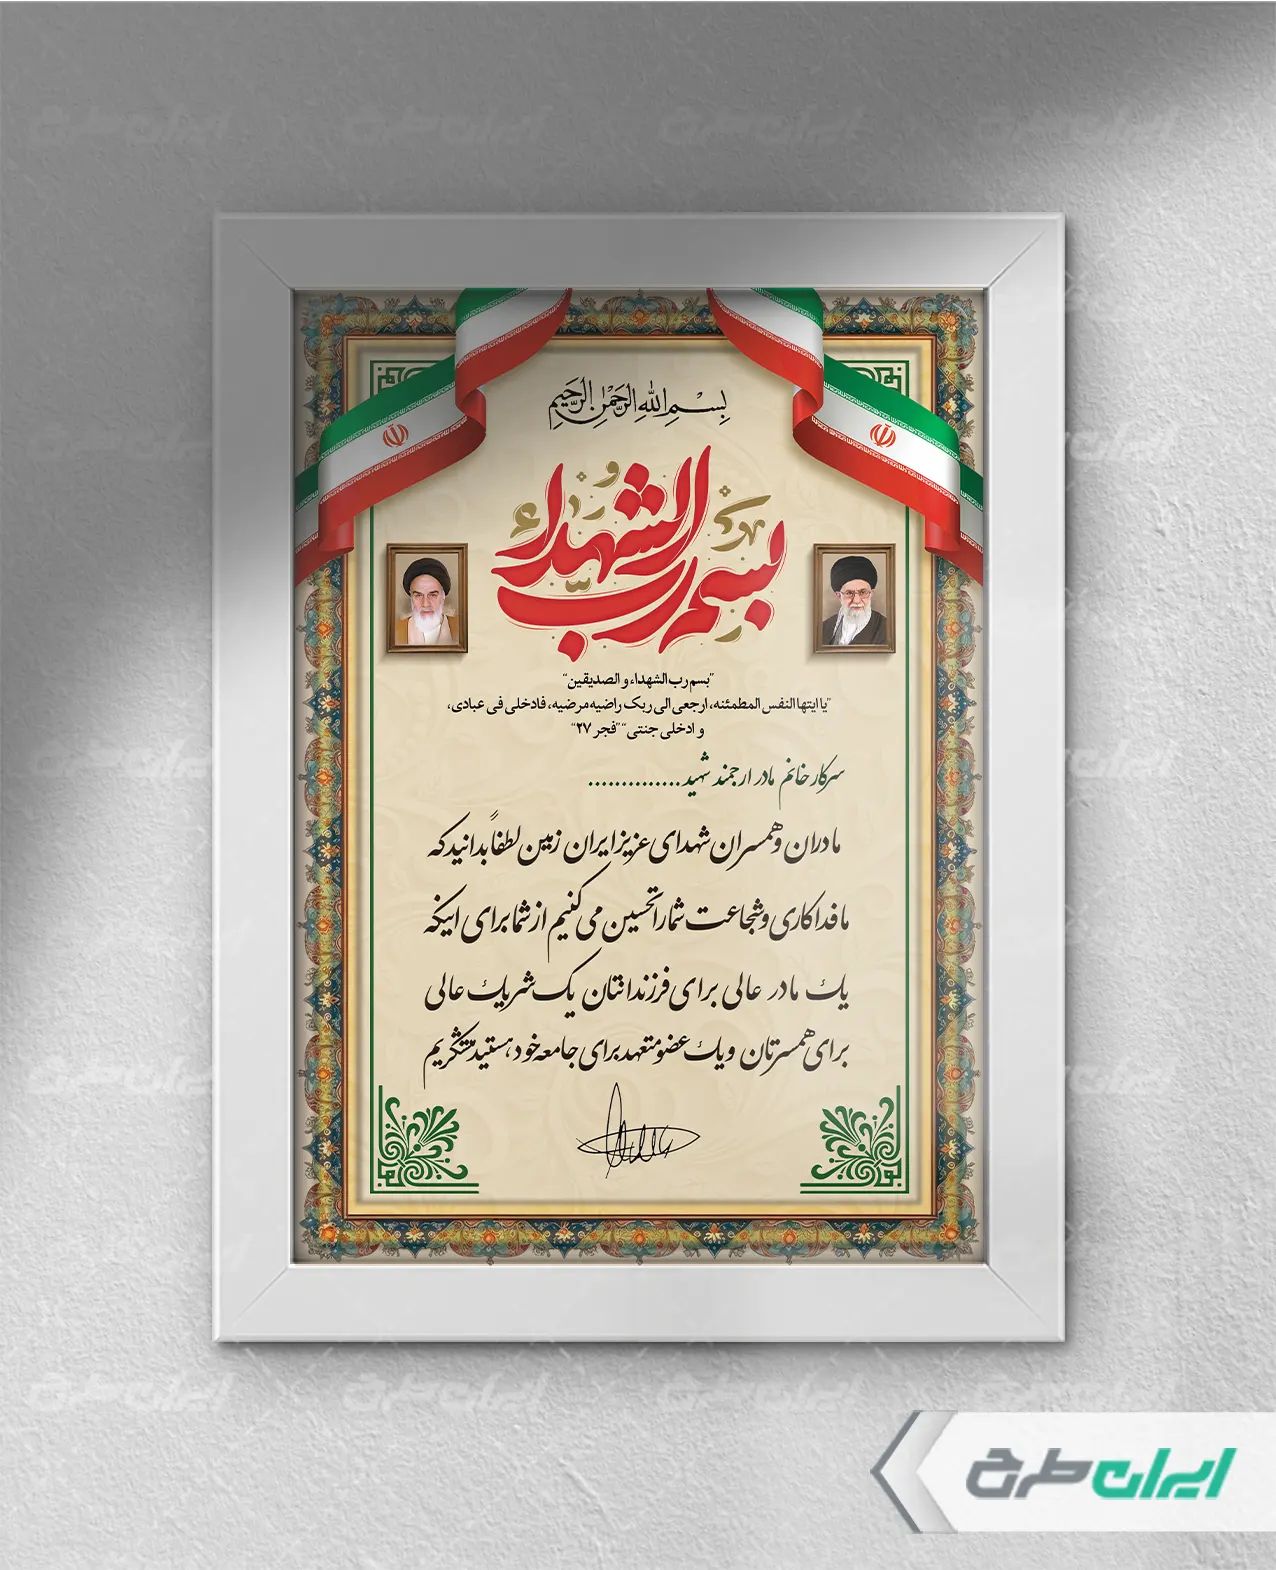 بِسْمِ اللهِ الرَّحْمٰنِ الرَّحِيمِ
بسم رب الشهداء
"بسم رب الشهداء و الصديقين"
"يا ايتها النفس المطمئنه، ارجعی الی ربک راضيه مرضيه، فادخلی فی عبادی،
و ادخلی جنتی" "فجر ۲۷"
سرکار خانم مادر ارجمند شهید ..............
مادران و همسران شهدای عزیز ایران زمین لطفاً بدانید که
ما فداکاری و شجاعت شما را تحسین می کنیم از شما برای اینکه
یک مادر عالی برای فرزندانتان یک شریک عالی
برای همسرتان و یک عضو متعهد برای جامعه خود هستید متشکریم
ایران طرح